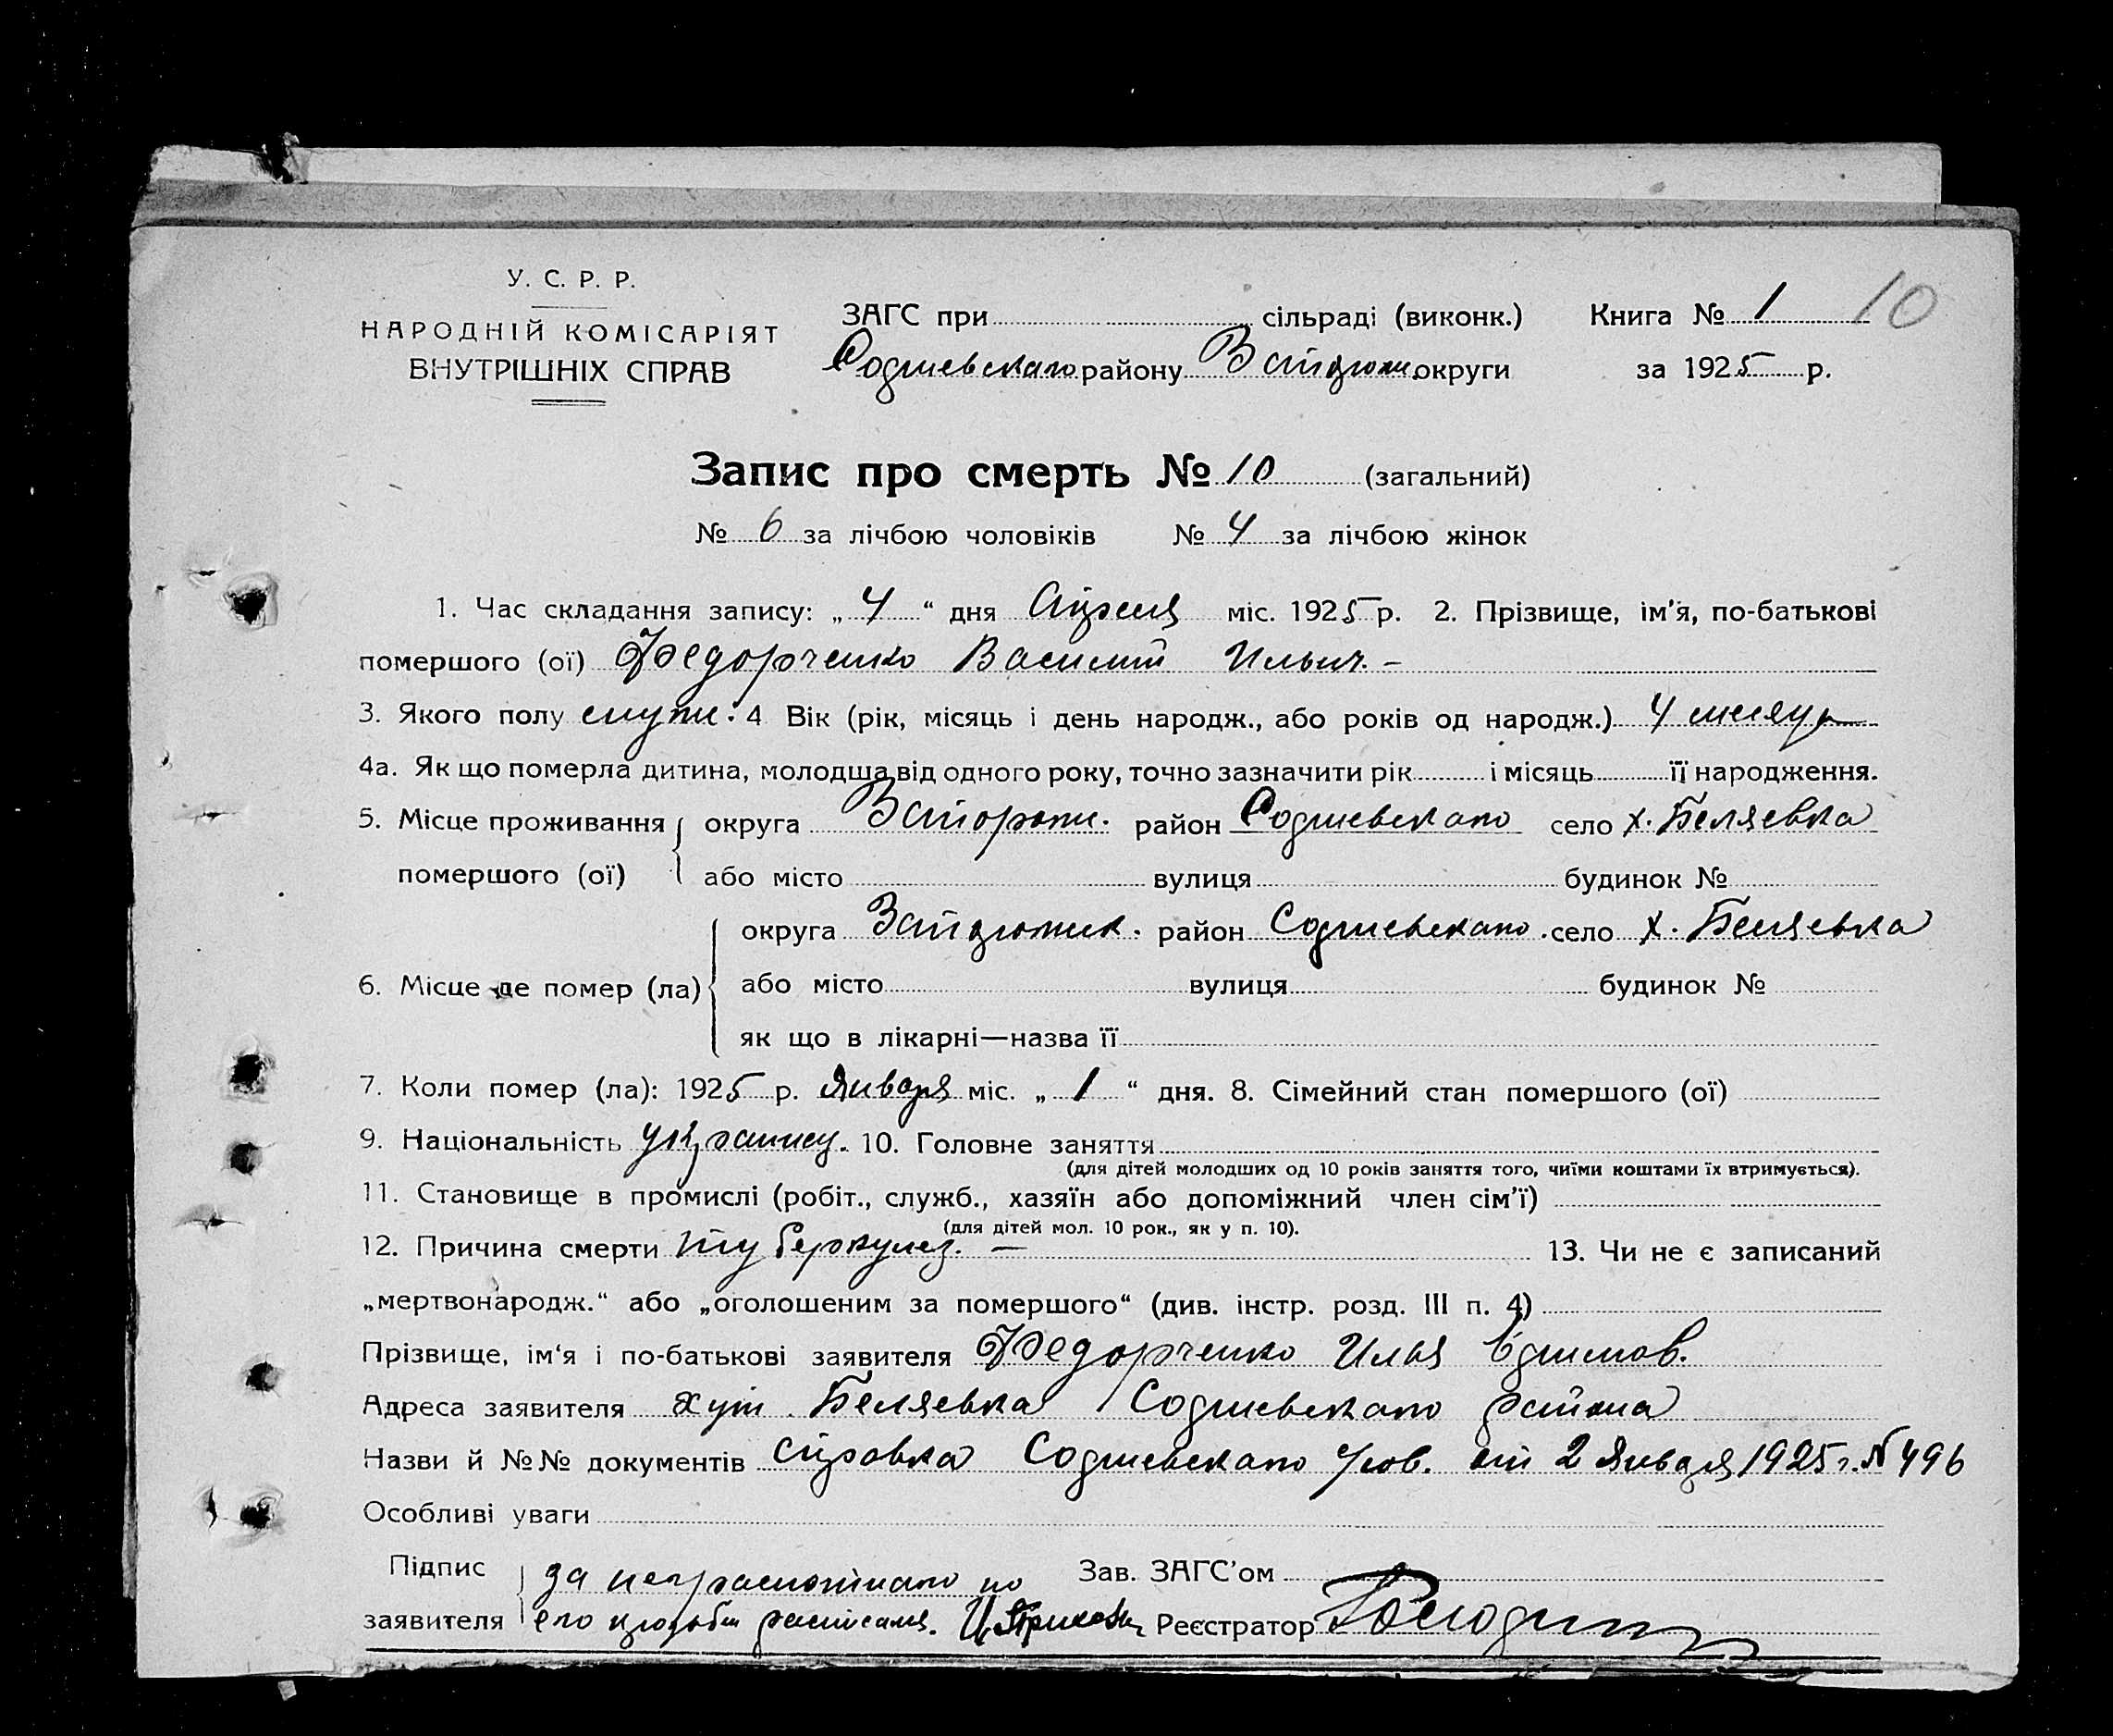 У. С. Р. Р.
НАРОДНІЙ КОМІСАРІЯТ
ВНУТРІШНІХ СПРАВ
ЗАГС при сільраді (виконк.) Книга № 1 10
району Запорож. округи за 1925 р.
Запис про смерть № 10 (загальний)
№ 6 за лічбою чоловіків № 4 за лічбою жінок
1. Час складання запису: „ 4 “ дня Апреля міс. 1925 р. 2. Прізвище, ім'я, по-батькові
помершого (ої) Федорченко Василий Ильич. –
3. Якого полу муж. 4 Вік (рік, місяць і день народж., або років од народж.) 4 месяца
4а. Як що померла дитина, молодша від одного року, точно зазначити рік і місяць її народження.
5. Місце проживання округа Запорож. район село х. Беляевка
помершого (ої) або місто вулиця будинок №
округа Запорожск. район село х. Беляевка
6. Місце де помер (ла) або місто вулиця будинок №
як що в лікарні—назва її
7. Коли помер (ла): 1925 р. Января міс. „ 1 “ дня. 8. Сімейний стан помершого (ої)
9. Національність украинец. 10. Головне заняття
(для дітей молодших од 10 років заняття того, чиїми коштами їх втримується).
11. Становище в промислі (робіт., служб., хазяїн або допоміжний член сім'ї)
(для дітей мол. 10 рок., як у п. 10).
12. Причина смерти туберкулез. – 13. Чи не є записаний
„мертвонародж.“ або „оголошеним за помершого“ (див. інстр. розд. III п. 4)
Прізвище, ім'я і по-батькові заявителя Федорченко Илья
Адреса заявителя хут. Беляевка района
Назви й №№ документів справка от 2 Января 1925 г. № 496
Особливі уваги
Підпис за неграмотного по Зав. ЗАГС'ом
заявителя его просьбы расписался. Реєстратор